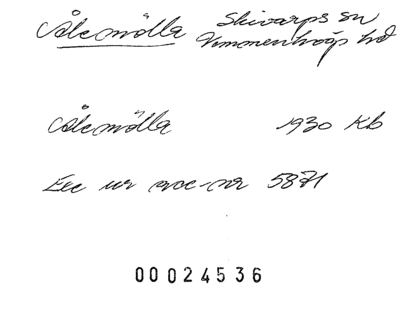 Ålemölla Skivarps sn
Vemmenhögs hd
Ålemölla 1930 Kb
Exc ur acc-nr 5871
00024536